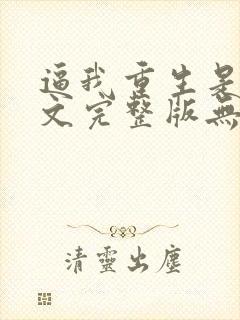 逼我重生是
文完整版無
清靈出塵